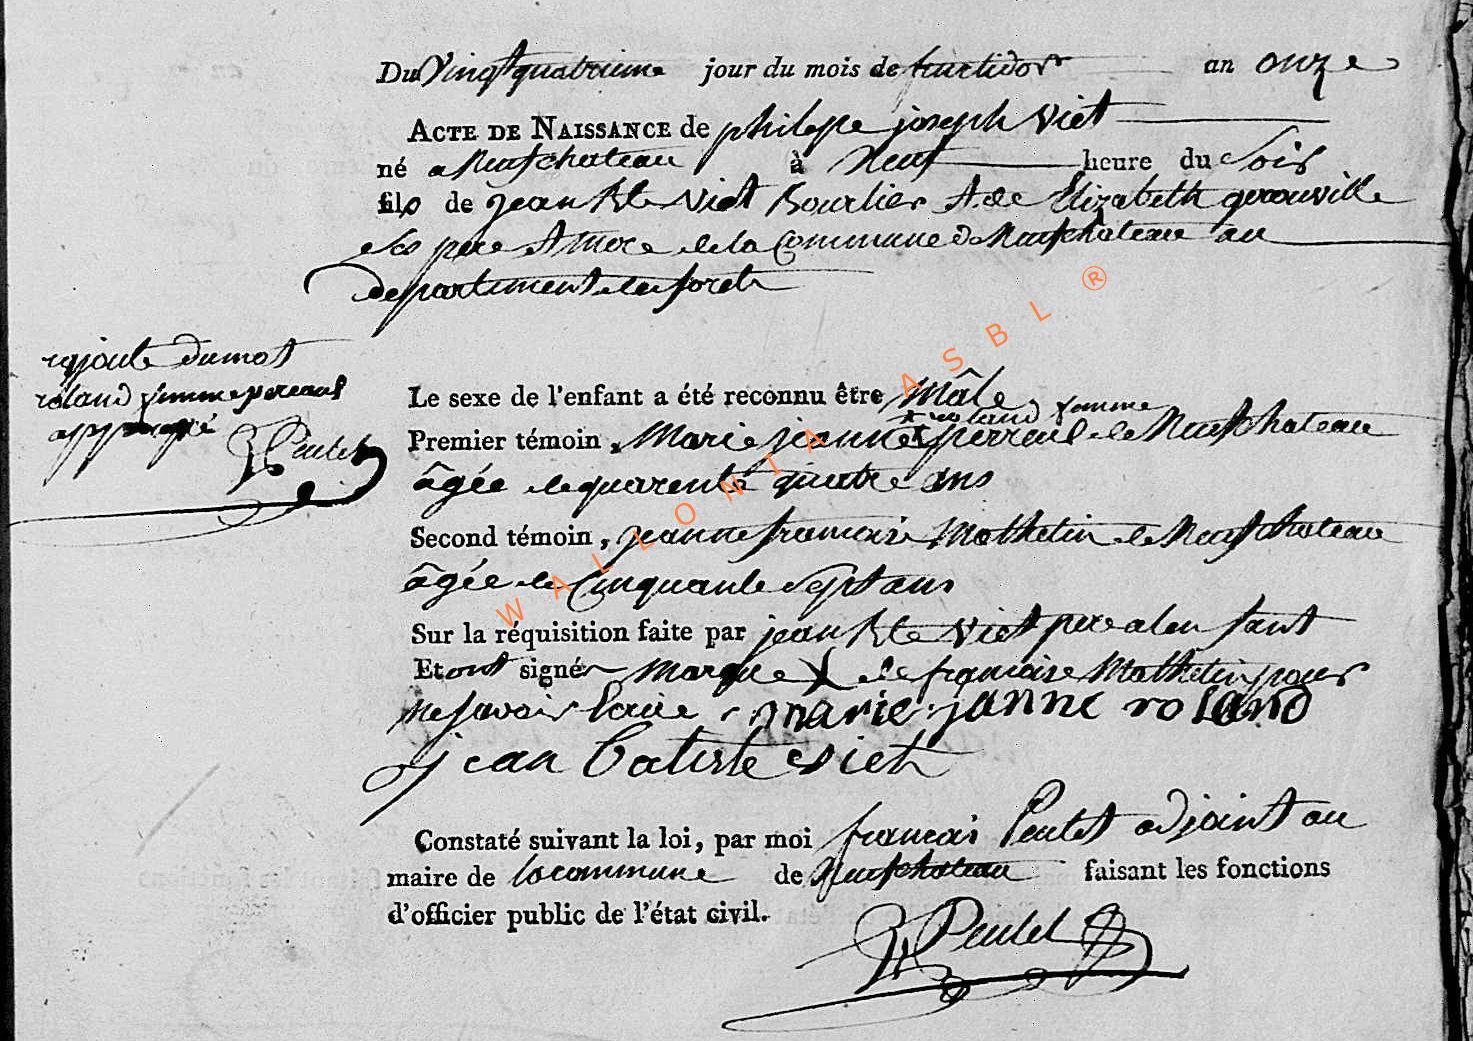 Du Vingtquatrieme jour du mois de fructidor an onze
ACTE DE NAISSANCE de philippe joseph Viet
né a Neufchateau à Neuf heure du Soir
fils de jean Bte Viet Bourlier & de Elizabeth gerouville
ses pere & mere de la Commune de Neufchateau au
departement des forets
rajoute du mot
roland femme perreaul
approuvé
Pentet
Le sexe de l'enfant a été reconnu être Mâle
roland femme
Premier témoin, Marie jeanne perreaul de Neufchateau
âgée de quarente quatre ans
Second témoin, jeanne francoise Mathelin de Neufchateau
âgée de Cinquante Sept ans
Sur la réquisition faite par jean Bte Viet pere a lenfant
Et ont signé Marque X de françoise Mathelin pour
ne savoir Ecrire marie janne roland
jean batiste viet
Constaté suivant la loi, par moi francois Pentet adjoint au
maire de la commune de Neufchateau faisant les fonctions
d'officier public de l'état civil.
Pentet
WALLONIA ASBL ®